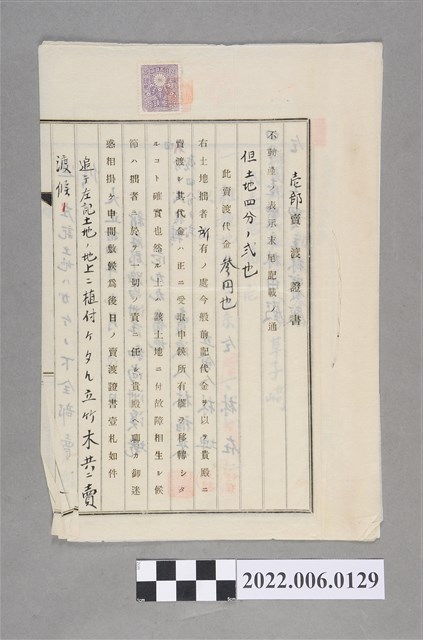 壱部賣渡證書
不動産ノ表示末尾記載ノ通
但土地四分ノ弐也
此賣渡代金參円也
右土地拙者所有ノ處今般前記代金ヲ以テ貴殿ニ
賣渡シ其代金ハ正ニ受取申候所有權ヲ移轉シタ
ルコト確實也然ル上ハ該土地ニ付故障相生シ候
節ハ拙者ニ於テ一切ノ責ニ任シ貴殿ヘ聊カ御迷
惑相掛ケ申間敷候為後日ノ賣渡證書壹札如件
追テ左記土地ノ地上ニ植付ケタル立竹木共ニ賣
渡候
2022.006.0129